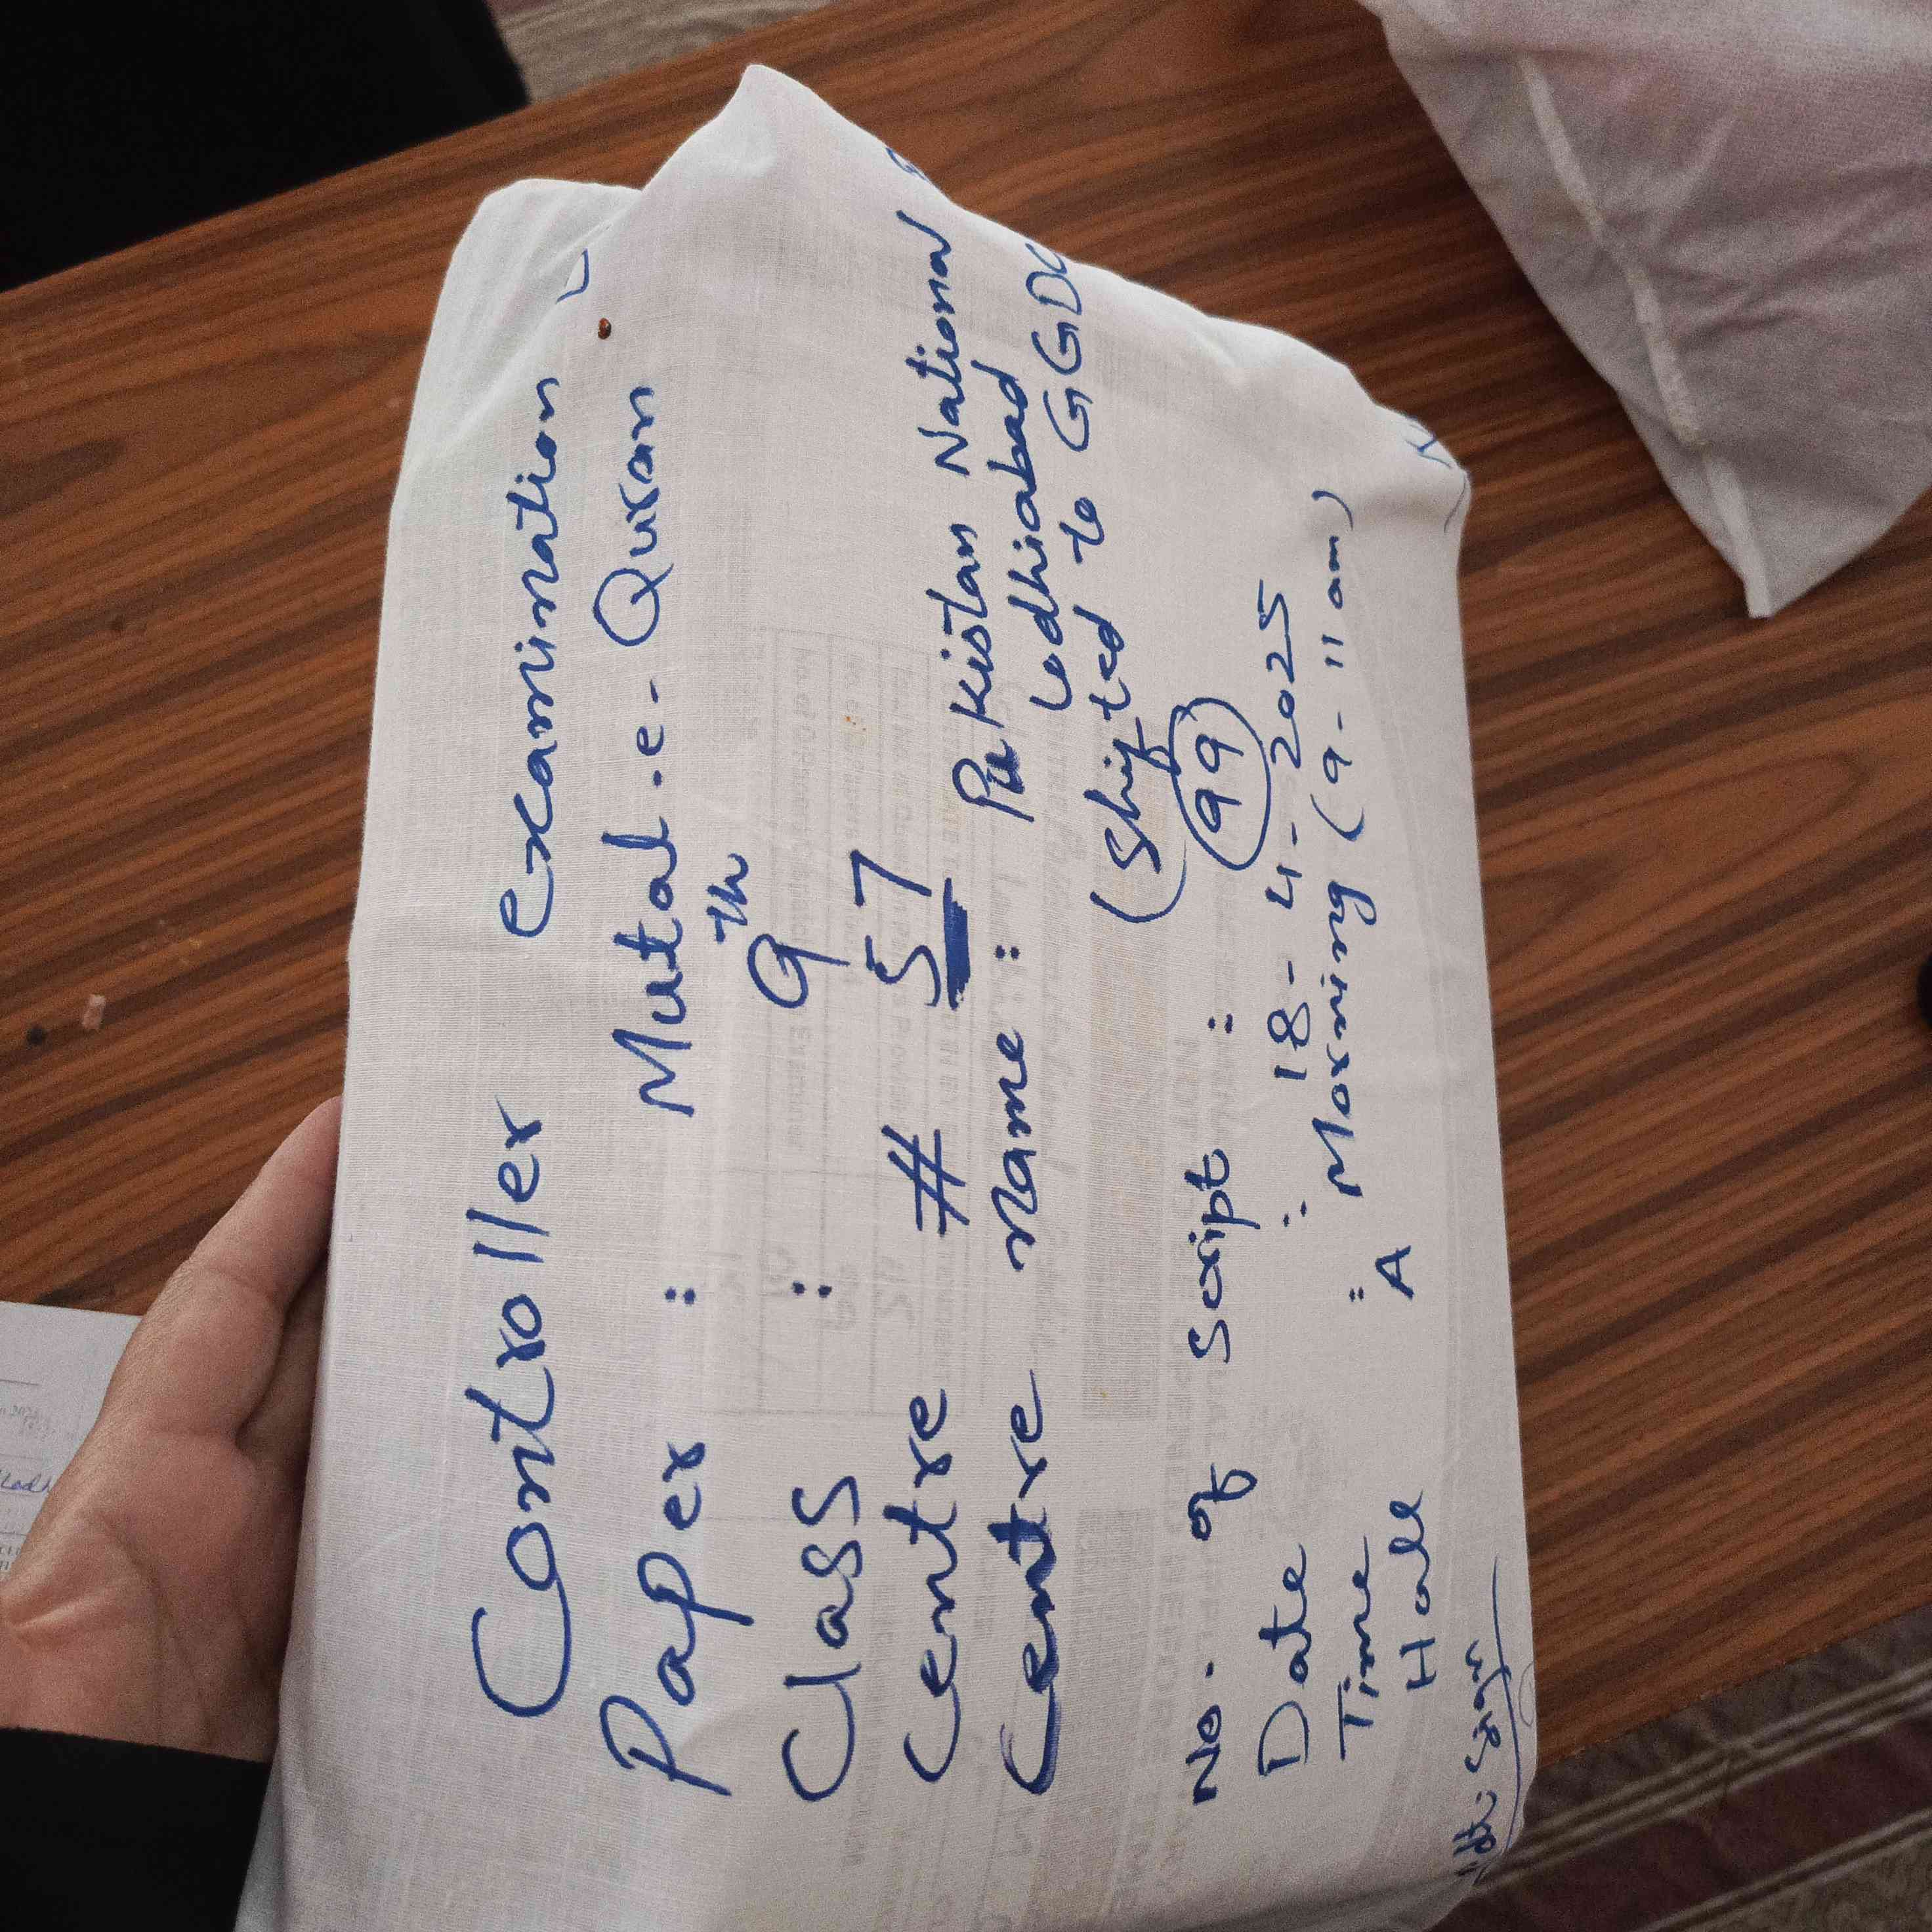 Controller examination
Paper : Mutal.e-Quran
Class : 9th
Centre # 57
Centre name : Pakistan National
Lodhiabad
(Shifted to GGDC
No. of Script : 99
Date : 18-4-2025
Time : Morning (9-11am)
Hall A